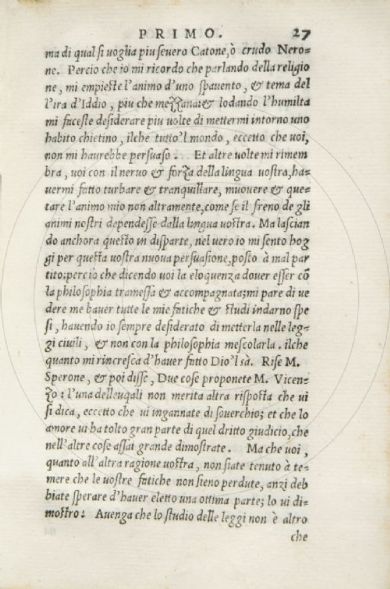 PRIMO. 27
ma di qual si uoglia piu seuero Catone, ò crudo Nero=
ne. Percio che io mi ricordo che parlando della religio
ne, mi empieste l'animo d'uno spauento, & tema del
l'ira d'Iddio, piu che mezzana: & lodando l'humilta
mi faceste desiderare piu uolte di mettermi intorno uno
habito chietino, ilche tutto'l mondo, eccetto che uoi,
non mi haurebbe persuaso... Et altre uolte mi rimem
bra, uoi con il neruo & forza della lingua uostra, ha=
uermi fatto turbare & tranquillare, muouere & que=
tare l'animo mio non altramente, come se il freno de gli
animi nostri dependesse dalla lingua uostra. Ma lascian
do anchora questo in disparte, nel uero io mi sento hog
gi per questa uostra nuoua persuasione, posto à mal par
tito; percio che dicendo uoi la eloquenza douer esser cõ
la philosophia tramessa & accompagnata; mi pare di ue
dere me hauer tutte le mie fatiche & studi indarno spe
si, hauendo io sempre desiderato di metterla nelle leg=
gi ciuili, & non con la philosophia mescolarla. ilche
quanto mi rincresca d'hauer fatto Dio'l sà. Rise M.
Sperone, & poi disse, Due cose proponete M. Vicen=
zo: l'una delle quali non merita altra risposta che ui
si dica, eccetto che ui ingannate di souerchio; et che lo
amore ui ha tolto gran parte di quel dritto giudicio, che
nell'altre cose assai grande dimostrate. Ma che uoi,
quanto all'altra ragione uostra, non siate tenuto à te=
mere che le uostre fatiche non sieno perdute, anzi deb
biate sperare d'hauer eletto una ottima parte; lo ui di=
mostro: Auenga che lo studio delle leggi non è altro
che